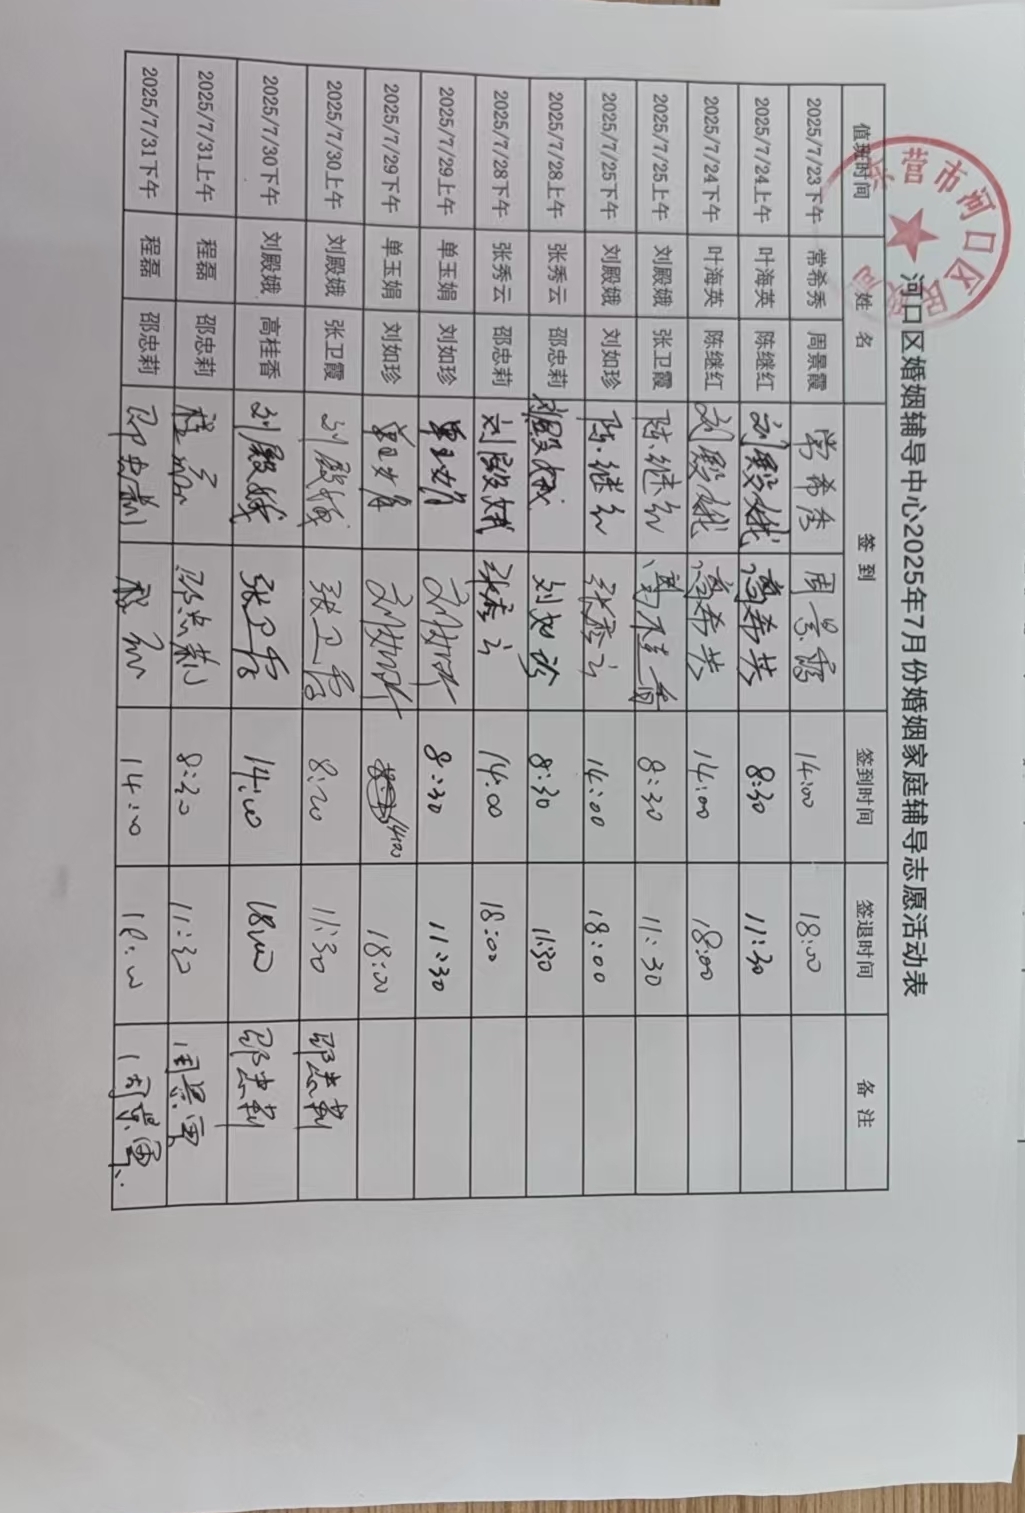 东营市河口区民政局
河口区婚姻辅导中心2025年7月份婚姻家庭辅导志愿活动表
值班时间 姓 名 签 到 签到时间 签退时间 备 注
2025/7/23下午 常希秀 周景霞 常希秀 周景霞 14:00 18:00
2025/7/24上午 叶海英 陈继红 刘殿娥 8:30 11:30
2025/7/24下午 叶海英 陈继红 刘殿娥 14:00 18:00
2025/7/25上午 刘殿娥 张卫霞 陈继红 高桂香 8:30 11:30
2025/7/25下午 刘殿娥 刘如珍 陈继红 张秀云 14:00 18:00
2025/7/28上午 张秀云 邵忠莉 刘殿娥 刘如珍 8:30 11:30
2025/7/28下午 张秀云 邵忠莉 刘殿娥 张秀云 14:00 18:00
2025/7/29上午 单玉娟 刘如珍 单玉娟 刘如珍 8:30 11:30
2025/7/29下午 单玉娟 刘如珍 单玉娟 刘如珍 14:00 18:00
2025/7/30上午 刘殿娥 张卫霞 刘殿娥 张卫霞 8:20 11:30 邵忠莉
2025/7/30下午 刘殿娥 高桂香 刘殿娥 张卫霞 14:00 18:00 邵忠莉
2025/7/31上午 程磊 邵忠莉 程磊 邵忠莉 8:30 11:30 周景霞
2025/7/31下午 程磊 邵忠莉 邵忠莉 程磊 14:00 18:00 周景霞